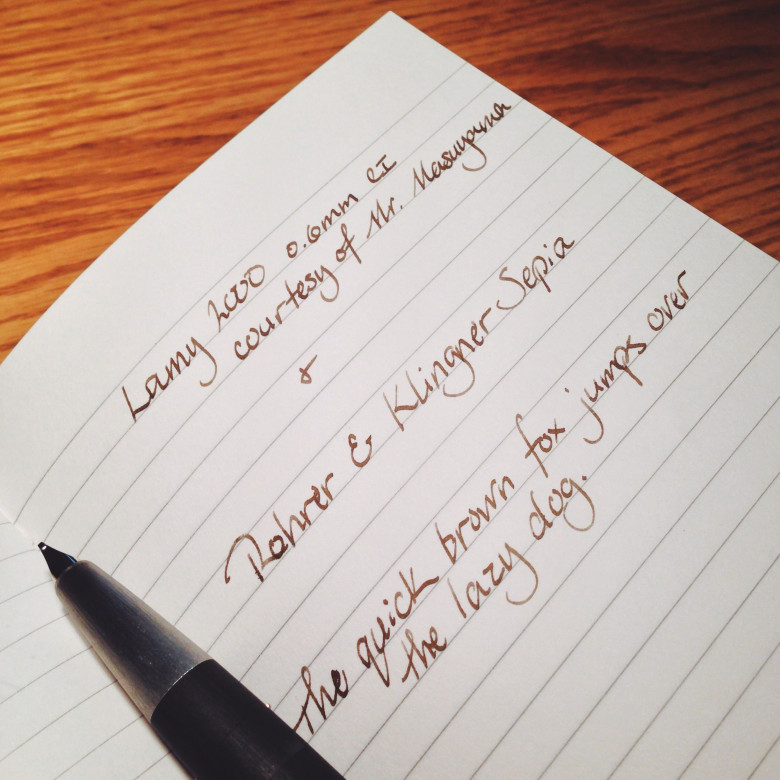 Lamy 2000 0.6mm CI
courtesy of Mr. Masuyama
&
Rohrer & Klingner Sepia
the quick brown fox jumps over
the lazy dog.